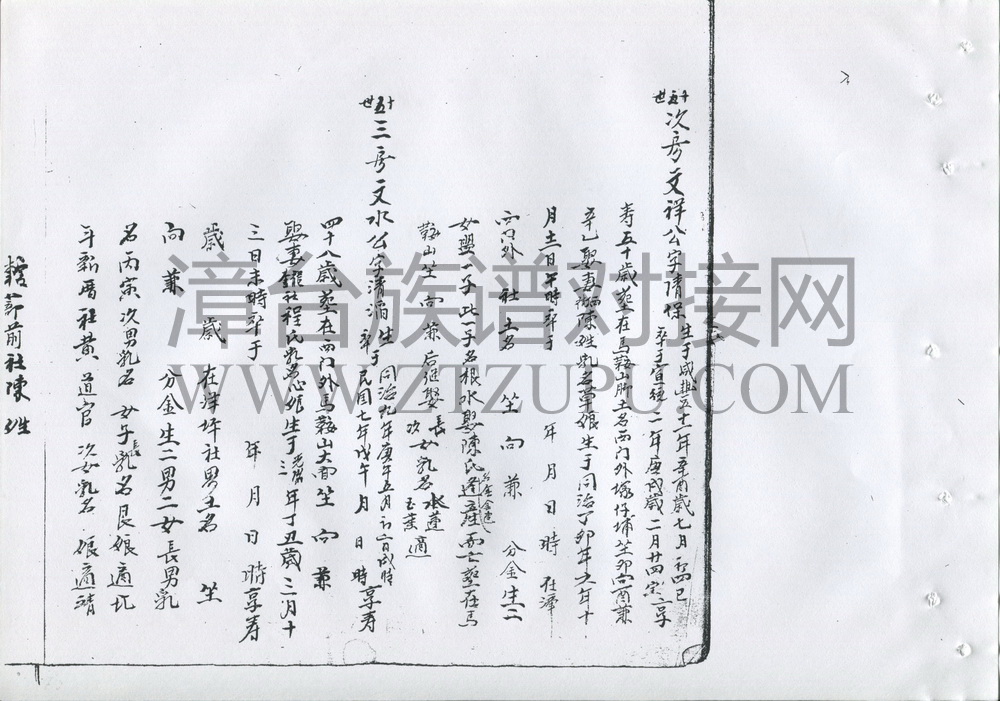 十五世 次房文祥公字清保 生于咸豊十一年辛酉歲七月 四巳
卒于宣統二年庚戌歲二月廿四寅 享
寿五十歲塟在馬鞍山脚土名西门外塚仔埔坐卯向酉兼
辛乙娶妻 陳姓乳名草娘生于同治丁卯年 年十
月十二日午時卒于 年 月 日 時 在潭
西门外 社土名 坐 向 兼 分金生二
女 一子此一子名根水娶陳氏 而亡塟在馬
鞍山坐 向 兼 后继娶 長次女乳名 水蓮 玉葉 適
十五世 三房文水公字清涌 生于同治九年庚午五月 日戌時
卒民国七年戊午 月 日 時享寿
四十八歲塟在西门外馬鞍山大 坐 向 兼
娶妻 社程氏乳名心娘生于光緒三年丁丑歲三月十
三日未時卒于 年 月 日 時享寿
歲 歲 在洋坪社男土名 坐
向 兼 分金生二男二女長男乳
名丙寅次男乳名 女子長乳名艮娘適坑
年新厝社黄道官 次女乳名 娘適靖
轄 前社陳姓
漳台族谱对接网
WWW.ZTZUPU.COM